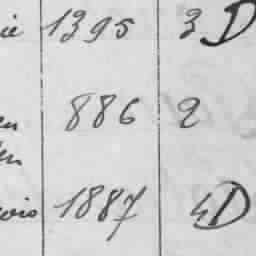 ie 1395 3 D
en 886 2
en
vois 1887 4 D